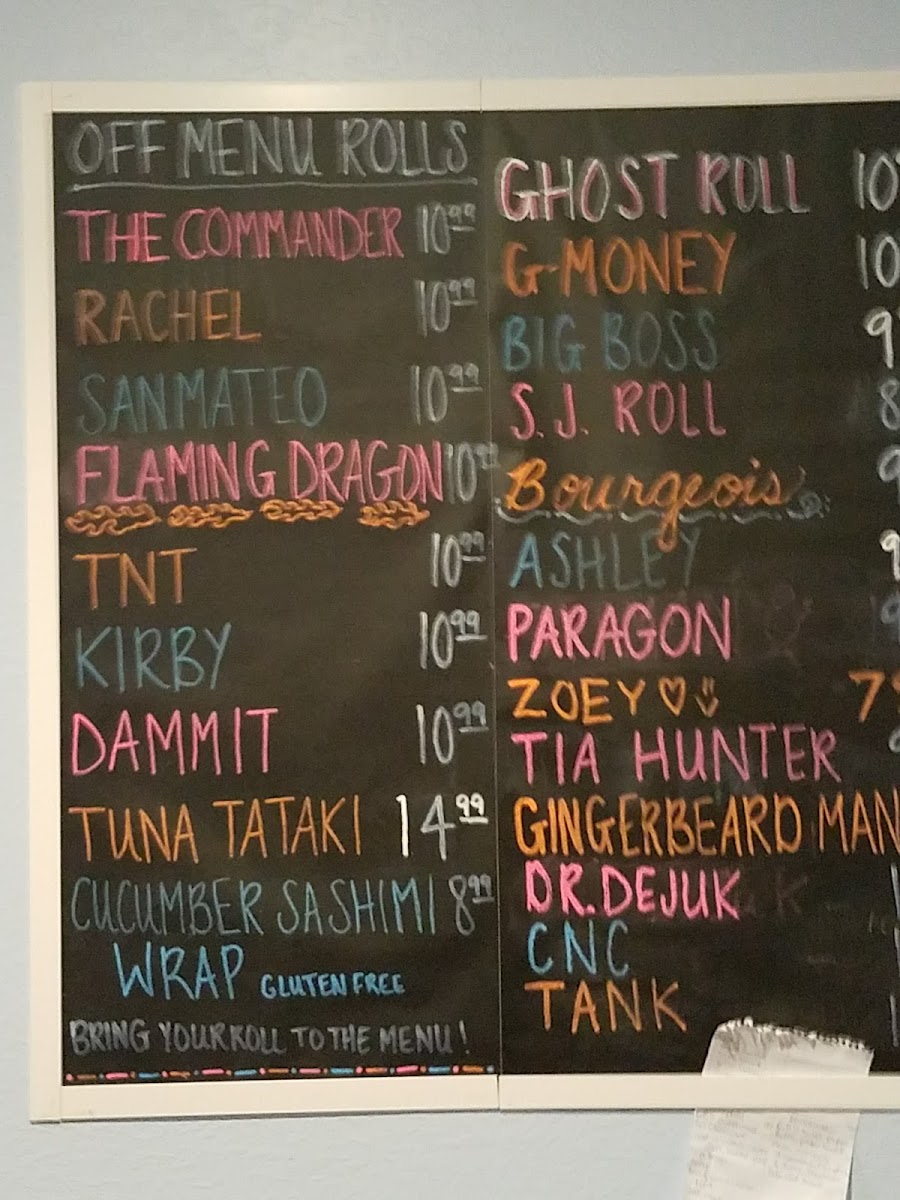 OFF MENU ROLLS
THE COMMANDER 10.99
RACHEL 10.99
SANMATEO 10.99
FLAMING DRAGON 10.99
TNT 10.99
KIRBY 10.99
DAMMIT 10.99
TUNA TATAKI 14.99
CUCUMBER SASHIMI 8.99
WRAP GLUTEN FREE
BRING YOUR ROLL TO THE MENU!
GHOST ROLL 10
G-MONEY 10
BIG BOSS 9
S.J. ROLL 8
Bourgeois 9
ASHLEY
PARAGON 9
ZOEY ♡ 7
TIA HUNTER
GINGERBEARD MAN
DR. DEJUK
CNC
TANK